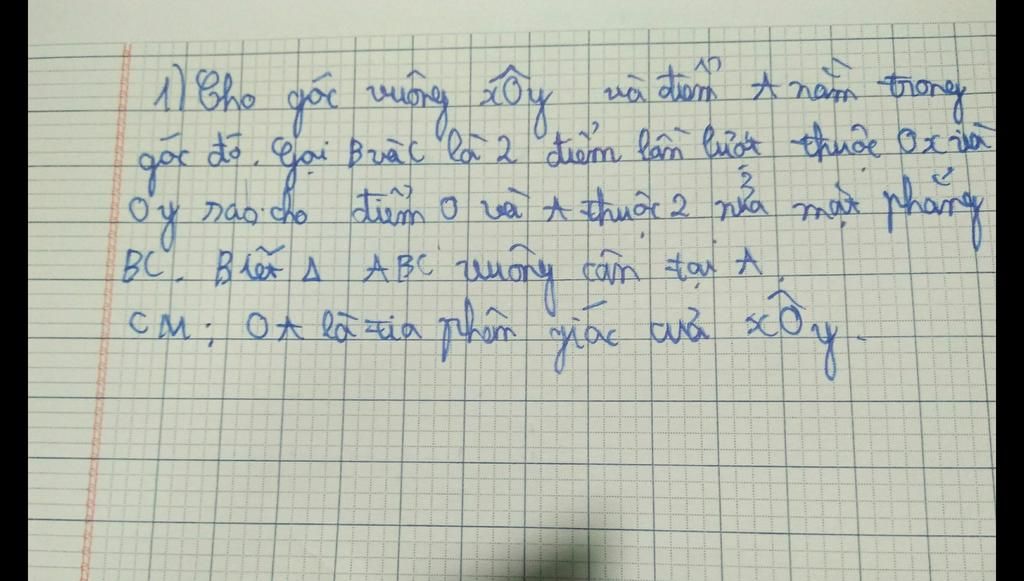 1) Cho góc vuông xÔy và điểm A nằm trong
góc đó. Gọi B và C là 2 điểm lần lượt thuộc Ox và
Oy sao cho điểm O và A thuộc 2 nửa mặt phẳng
BC. Biết Δ ABC vuông cân tại A.
CM: OA là tia phân giác của xÔy.